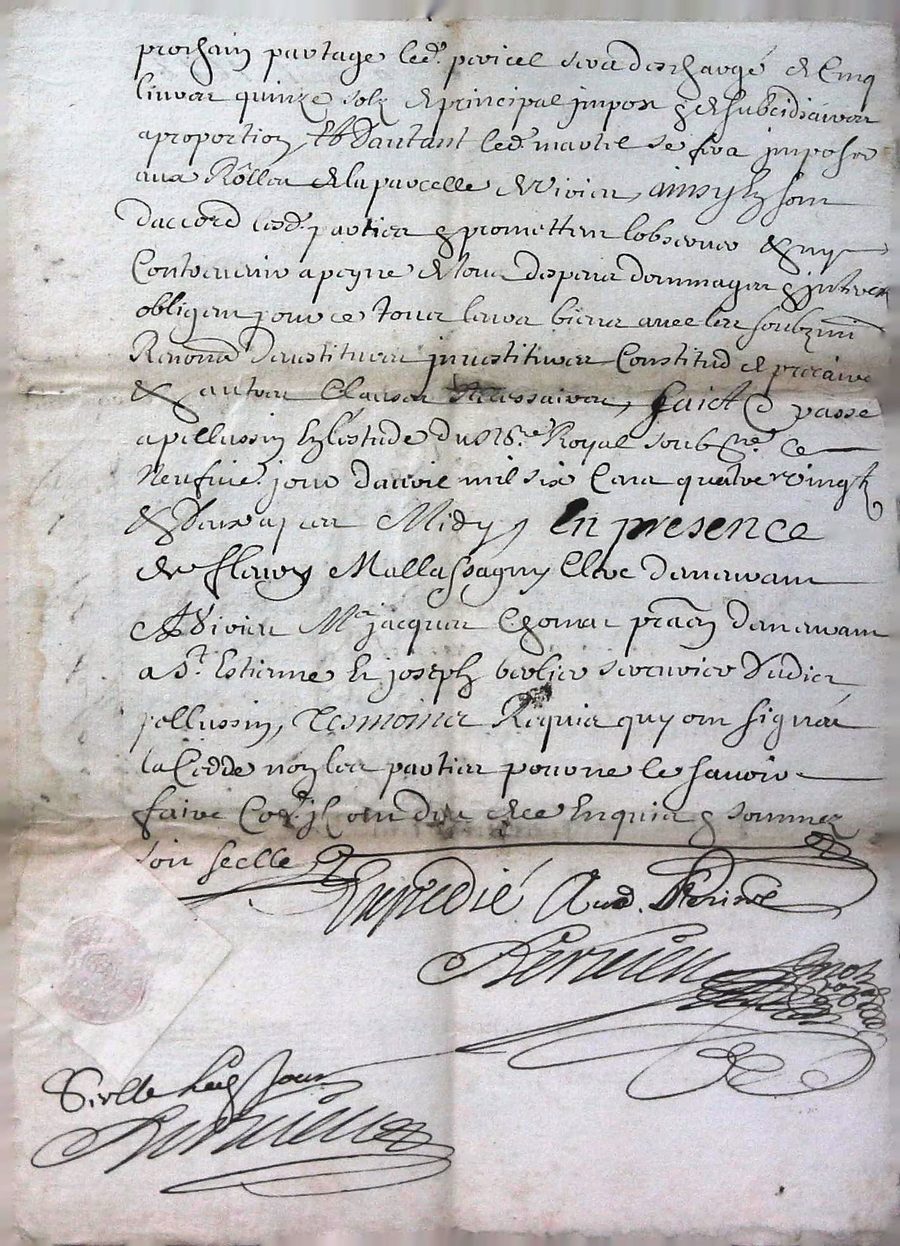 prochain partage led. pericel sera deschargé de Cinq
livres quinze solz de principal impos & de subcidiaires
a proportion, Et Dautant led. martel se fera imposer
aux Rôlles de la parcelle de Virieu, ainsy Ilz sont
daccord lesd. parties & promettent lobserver & ny
Contrevenir a peyne de tous despens dommages & intherestz
obligeant pour ce tous leurs biens avec les soubzmi
Renon destitues investitues Constitu de precaire
& autres Clauses necessaires, Faict & passé
a pellussin En lestude du no.re Royal soub.né ce
Neufvie. jour davril mil six Cens quatre vingtz
& Deux apres Midy, En presence
de fleury Mallassagny Clerc demeurant
A Virieu Me jacques Chomat demeurant
a St. Estienne Et joseph verlier serrurier dudict
pellussin, Tesmoins Requis quy ont signés
la Cedde non les parties pour ne le savoir
faire Co. Ilz ont dict de ce Enquis & sommez
soit seellé
Expedié Aud.
Seellé led Jour